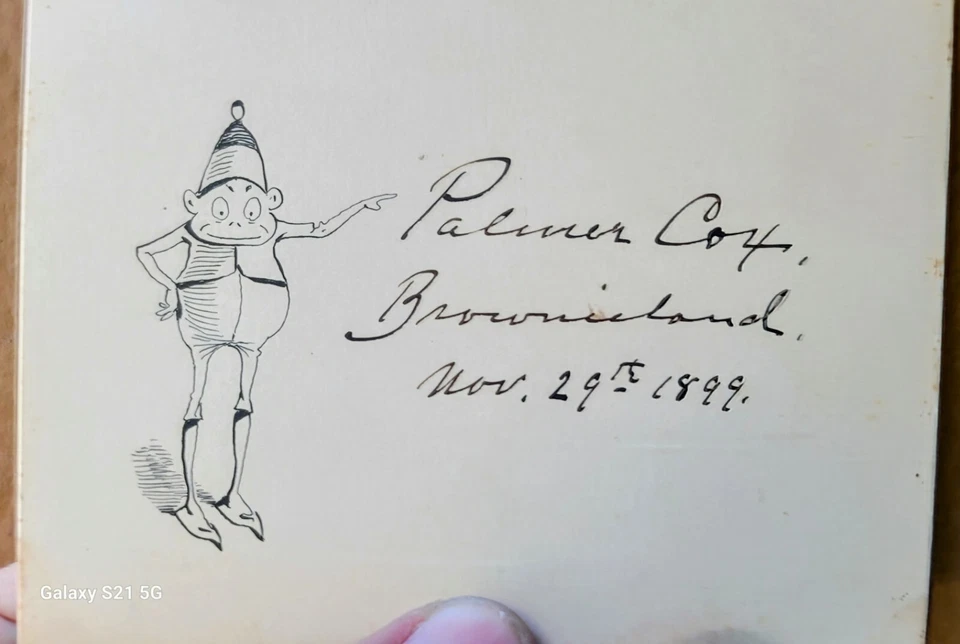 Palmer Cox,
Brownieland.
Nov. 29th 1899.
Galaxy S21 5G